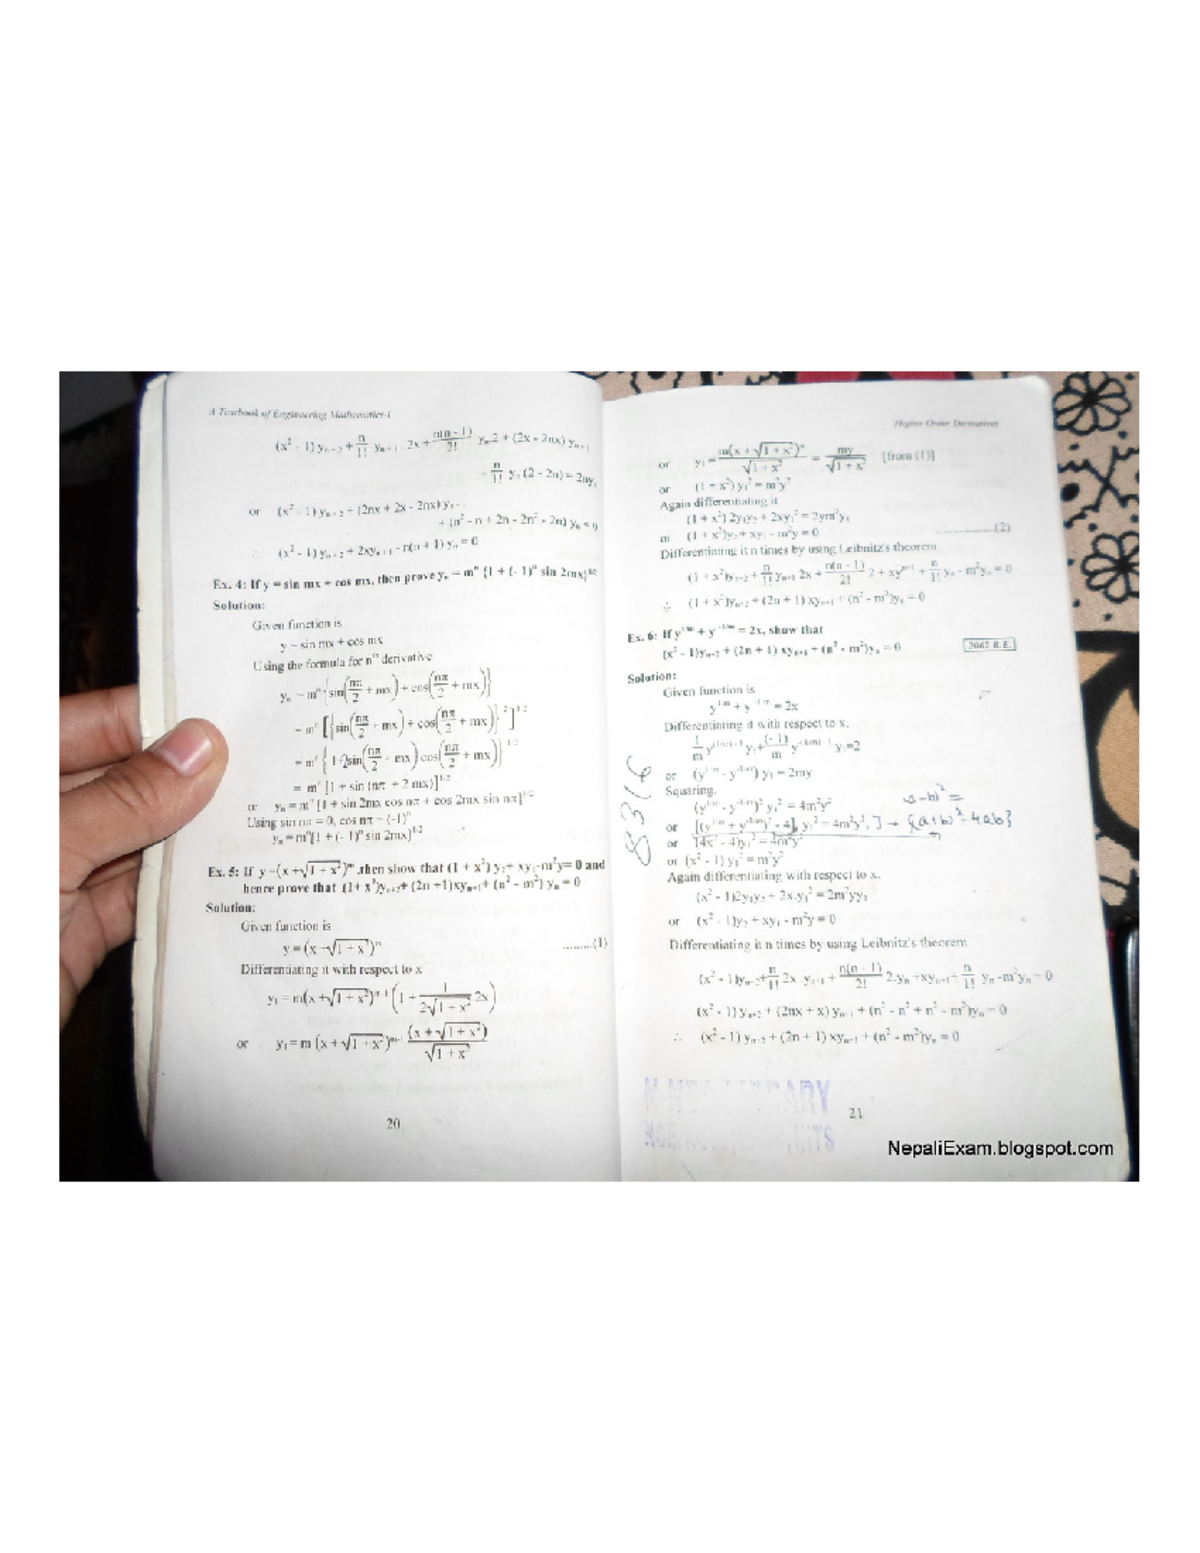 A Textbook of Engineering Mathematics-I
(x² - 1) yₙ₊₂ + n/1! yₙ₊₁ . 2x + n(n - 1)/2! yₙ.2 + (2x - 2nx) yₙ₊₁
+ n/1! yₙ (2 - 2n) = 2nyₙ
or (x² - 1) yₙ₊₂ + (2nx + 2x - 2nx) yₙ₊₁
+ (n² - n + 2n - 2n² - 2n) yₙ = 0
∴ (x² - 1) yₙ₊₂ + 2xyₙ₊₁ - n(n + 1) yₙ = 0
Ex. 4: If y = sin mx + cos mx, then prove yₙ = mⁿ {1 + (- 1)ⁿ sin 2mx}^1/2
Solution:
Given function is
y = sin mx + cos mx
Using the formula for nᵗʰ derivative
yₙ = mⁿ {sin(nπ/2 + mx) + cos(nπ/2 + mx)}
= mⁿ [{sin(nπ/2 + mx) + cos(nπ/2 + mx)}²]^1/2
= mⁿ {1+2sin(nπ/2 + mx) cos(nπ/2 + mx)}^1/2
= mⁿ [1 + sin (nπ + 2 mx)]^1/2
or yₙ = mⁿ [1 + sin 2mx cos nπ + cos 2mx sin nπ]^1/2
Using sin nπ = 0, cos nπ = (-1)ⁿ
yₙ = mⁿ[1 + (- 1)ⁿ sin 2mx]^1/2
Ex. 5: If y =(x +√1 + x²)ᵐ ,then show that (1 + x²) y₂+ xy₁-m²y= 0 and
hence prove that (1+ x²)yₙ₊₂+ (2n +1)xyₙ₊₁+ (n² - m²) yₙ = 0
Solution:
Given function is
y = (x +√1 + x²)ᵐ ..........(1)
Differentiating it with respect to x
y₁ = m(x +√1 + x²)ᵐ⁻¹ (1 + 1/2√1 + x² 2x)
or y₁ = m (x + √1 + x²)ᵐ⁻¹ (x + √1 + x²)/√1 + x²
20
Higher Order Derivatives
or y₁ = m(x + √1 + x²)ᵐ/√1 + x² = my/√1 + x² [from (1)]
or (1 + x²) y₁² = m²y²
Again differentiating it
(1 + x²) 2y₁y₂ + 2xy₁² = 2ym²y₁
or (1 + x²)y₂ + xy₁ - m²y = 0 ................(2)
Differentiating it n times by using Leibnitz's theorem
(1 + x²)yₙ₊₂ + n/1! yₙ₊₁ 2x + n(n - 1)/2! 2 + xyⁿ⁺¹ + n/1! yₙ - m²yₙ = 0
∴ (1 + x²)yₙ₊₂ + (2n + 1) xyₙ₊₁ + (n² - m²)yₙ = 0
Ex. 6: If y^1/m + y^-1/m = 2x, show that
(x² - 1)yₙ₊₂ + (2n + 1) xyₙ₊₁ + (n² - m²)yₙ = 0 2062 B.E.
Solution:
Given function is
y^1/m + y^-1/m = 2x
Differentiating it with respect to x,
1/m y^(1/m)-1 y₁+(- 1)/m y^-(1/m)-1 y₁=2
or (y^1/m - y^-1/m) y₁ = 2my
Squaring,
(y^1/m - y^-1/m)² y₁² = 4m²y²
a-b)² =
or [(y^1/m + y^-1/m)² - 4] y₁² = 4m²y², ] → {(a+b)² - 4ab}
or [4x² - 4)y₁² = 4m²y²
or (x² - 1) y₁² = m²y²
Again differentiating with respect to x,
(x² - 1)2y₁y₂ + 2x.y₁² = 2m²yy₁
or (x² - 1)y₂ + xy₁ - m²y = 0
Differentiating it n times by using Leibnitz's theorem
(x² - 1)yₙ₊₂+n/1! 2x .yₙ₊₁ + n(n - 1)/2! 2.yₙ +xyₙ₊₁+ n/1! yₙ -m²yₙ = 0
(x² - 1) yₙ₊₂ + (2nx + x) yₙ₊₁ + (n² - n² + n² - m²)yₙ = 0
∴ (x² - 1) yₙ₊₂ + (2n + 1) xyₙ₊₁ + (n² - m²)yₙ = 0
21
8316
NepaliExam.blogspot.com